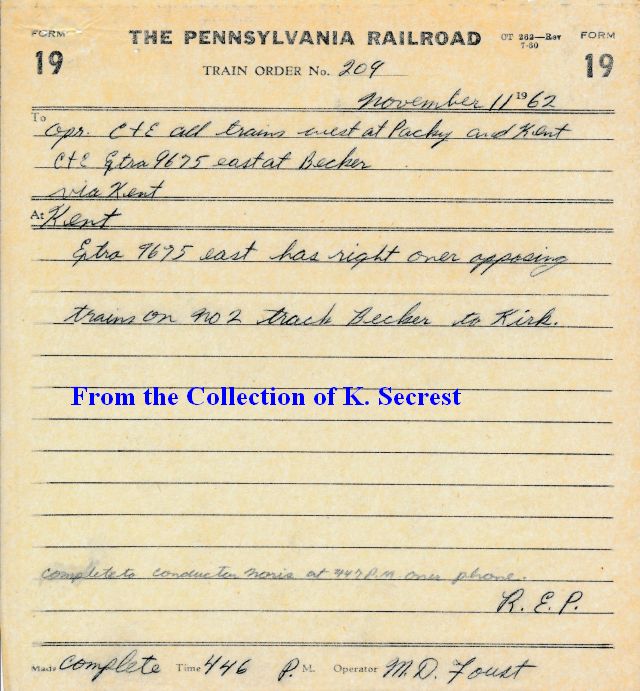 FORM 19 THE PENNSYLVANIA RAILROAD CT 262—Rev 7-60 FORM 19
TRAIN ORDER No. 209
November 11 1962
To
opr. C+E all trains west at Packy and Kent
C+E Extra 9675 east at Becker
via Kent
At Kent
Extra 9675 east has right over opposing
trains on No 2 track Becker to Kirk.
From the Collection of K. Secrest
complete to conductor at 447 P.M. over phone.
R. E. P.
Made complete Time 446 P. M. Operator M. D. Foust